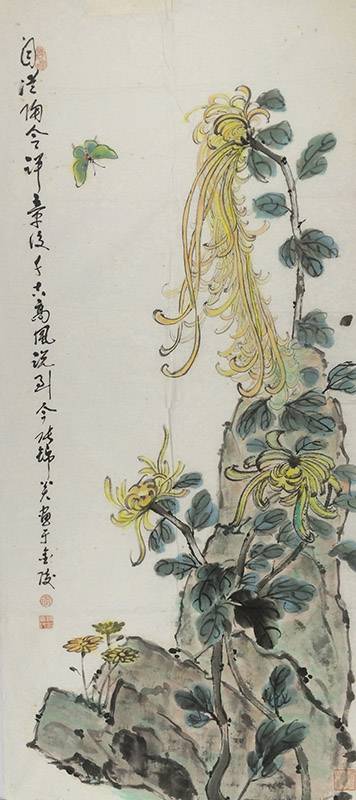 自从陶令评章后千古高风说到今张锦美画于金陵